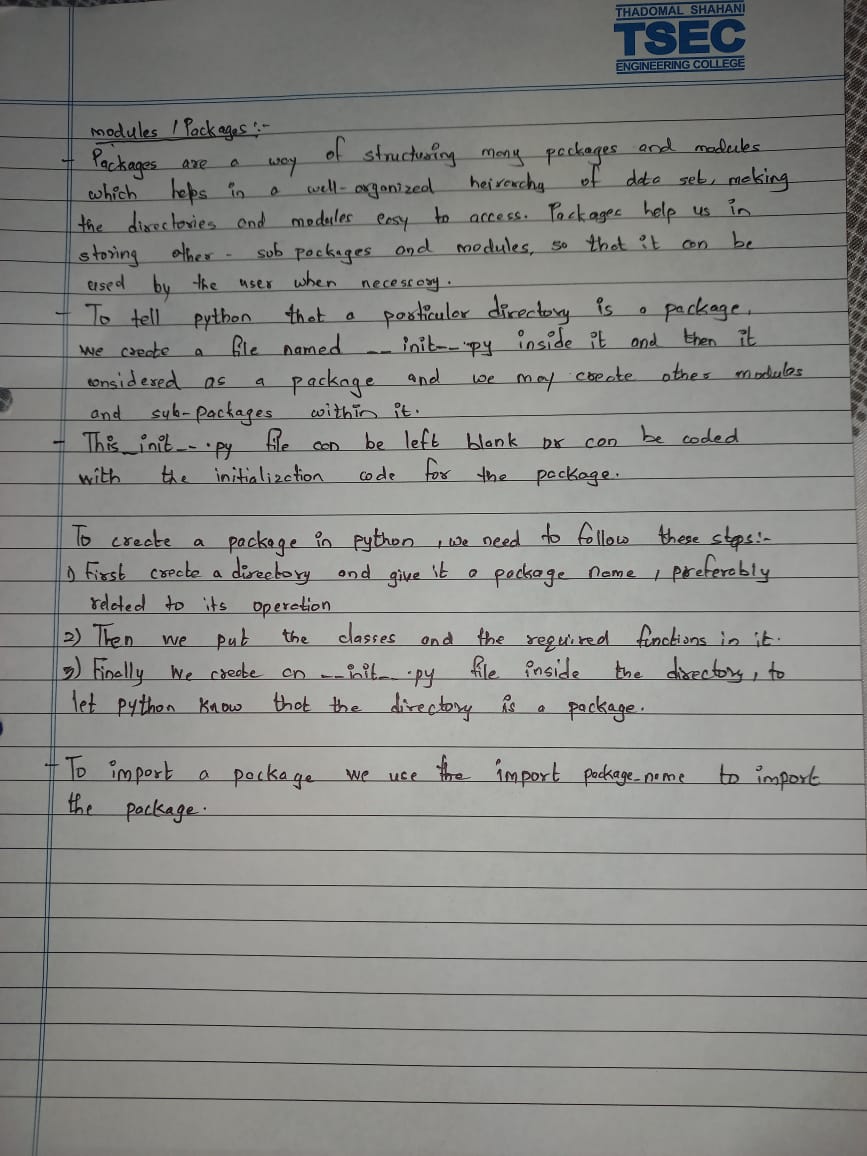 THADOMAL SHAHANI
TSEC
ENGINEERING COLLEGE
modules / Packages :-
- Packages are a way of structuring many packages and modules
which helps in a well-organized heirarchy of data set, making
the directories and modules easy to access. Packages help us in
storing other - sub packages and modules, so that it can be
used by the user when necessary.
- To tell python that a particular directory is a package,
we create a file named __init__.py inside it and then it
considered as a package and we may create other modules
and sub-packages within it.
- This _init__.py file can be left blank or can be coded
with the initialization code for the package.
To create a package in python, we need to follow these steps:-
1) First create a directory and give it a package name, preferably
related to its operation
2) Then we put the classes and the required functions in it.
3) Finally we create an __init__.py file inside the directory, to
let python know that the directory is a package.
- To import a package we use the import package_name to import
the package.